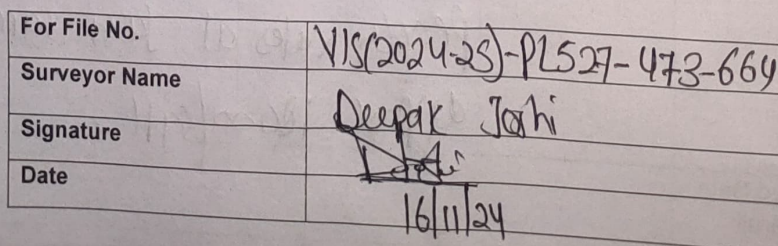 For File No. VIS(2024-25)-PL527-473-664
Surveyor Name Deepak Joshi
Signature
Date 16/11/24